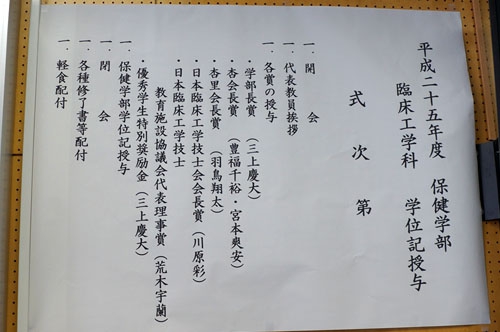 平成二十五年度　保健学部
臨床工学科　学位記授与
式　次　第
一．開　　会
一．代表教員挨拶
一．各賞の授与
・学部長賞　（三上慶大）
・杏会長賞　（豊福千裕・宮本爽安）
・杏里会長賞　（羽鳥翔太）
・日本臨床工学技士会会長賞（川原彩）
・日本臨床工学技士
教育施設協議会代表理事賞（荒木宇蘭）
・優秀学生特別奨励金（三上慶大）
一．保健学部学位記授与
一．閉　　会
一．各種修了書等配付
一．軽食配付